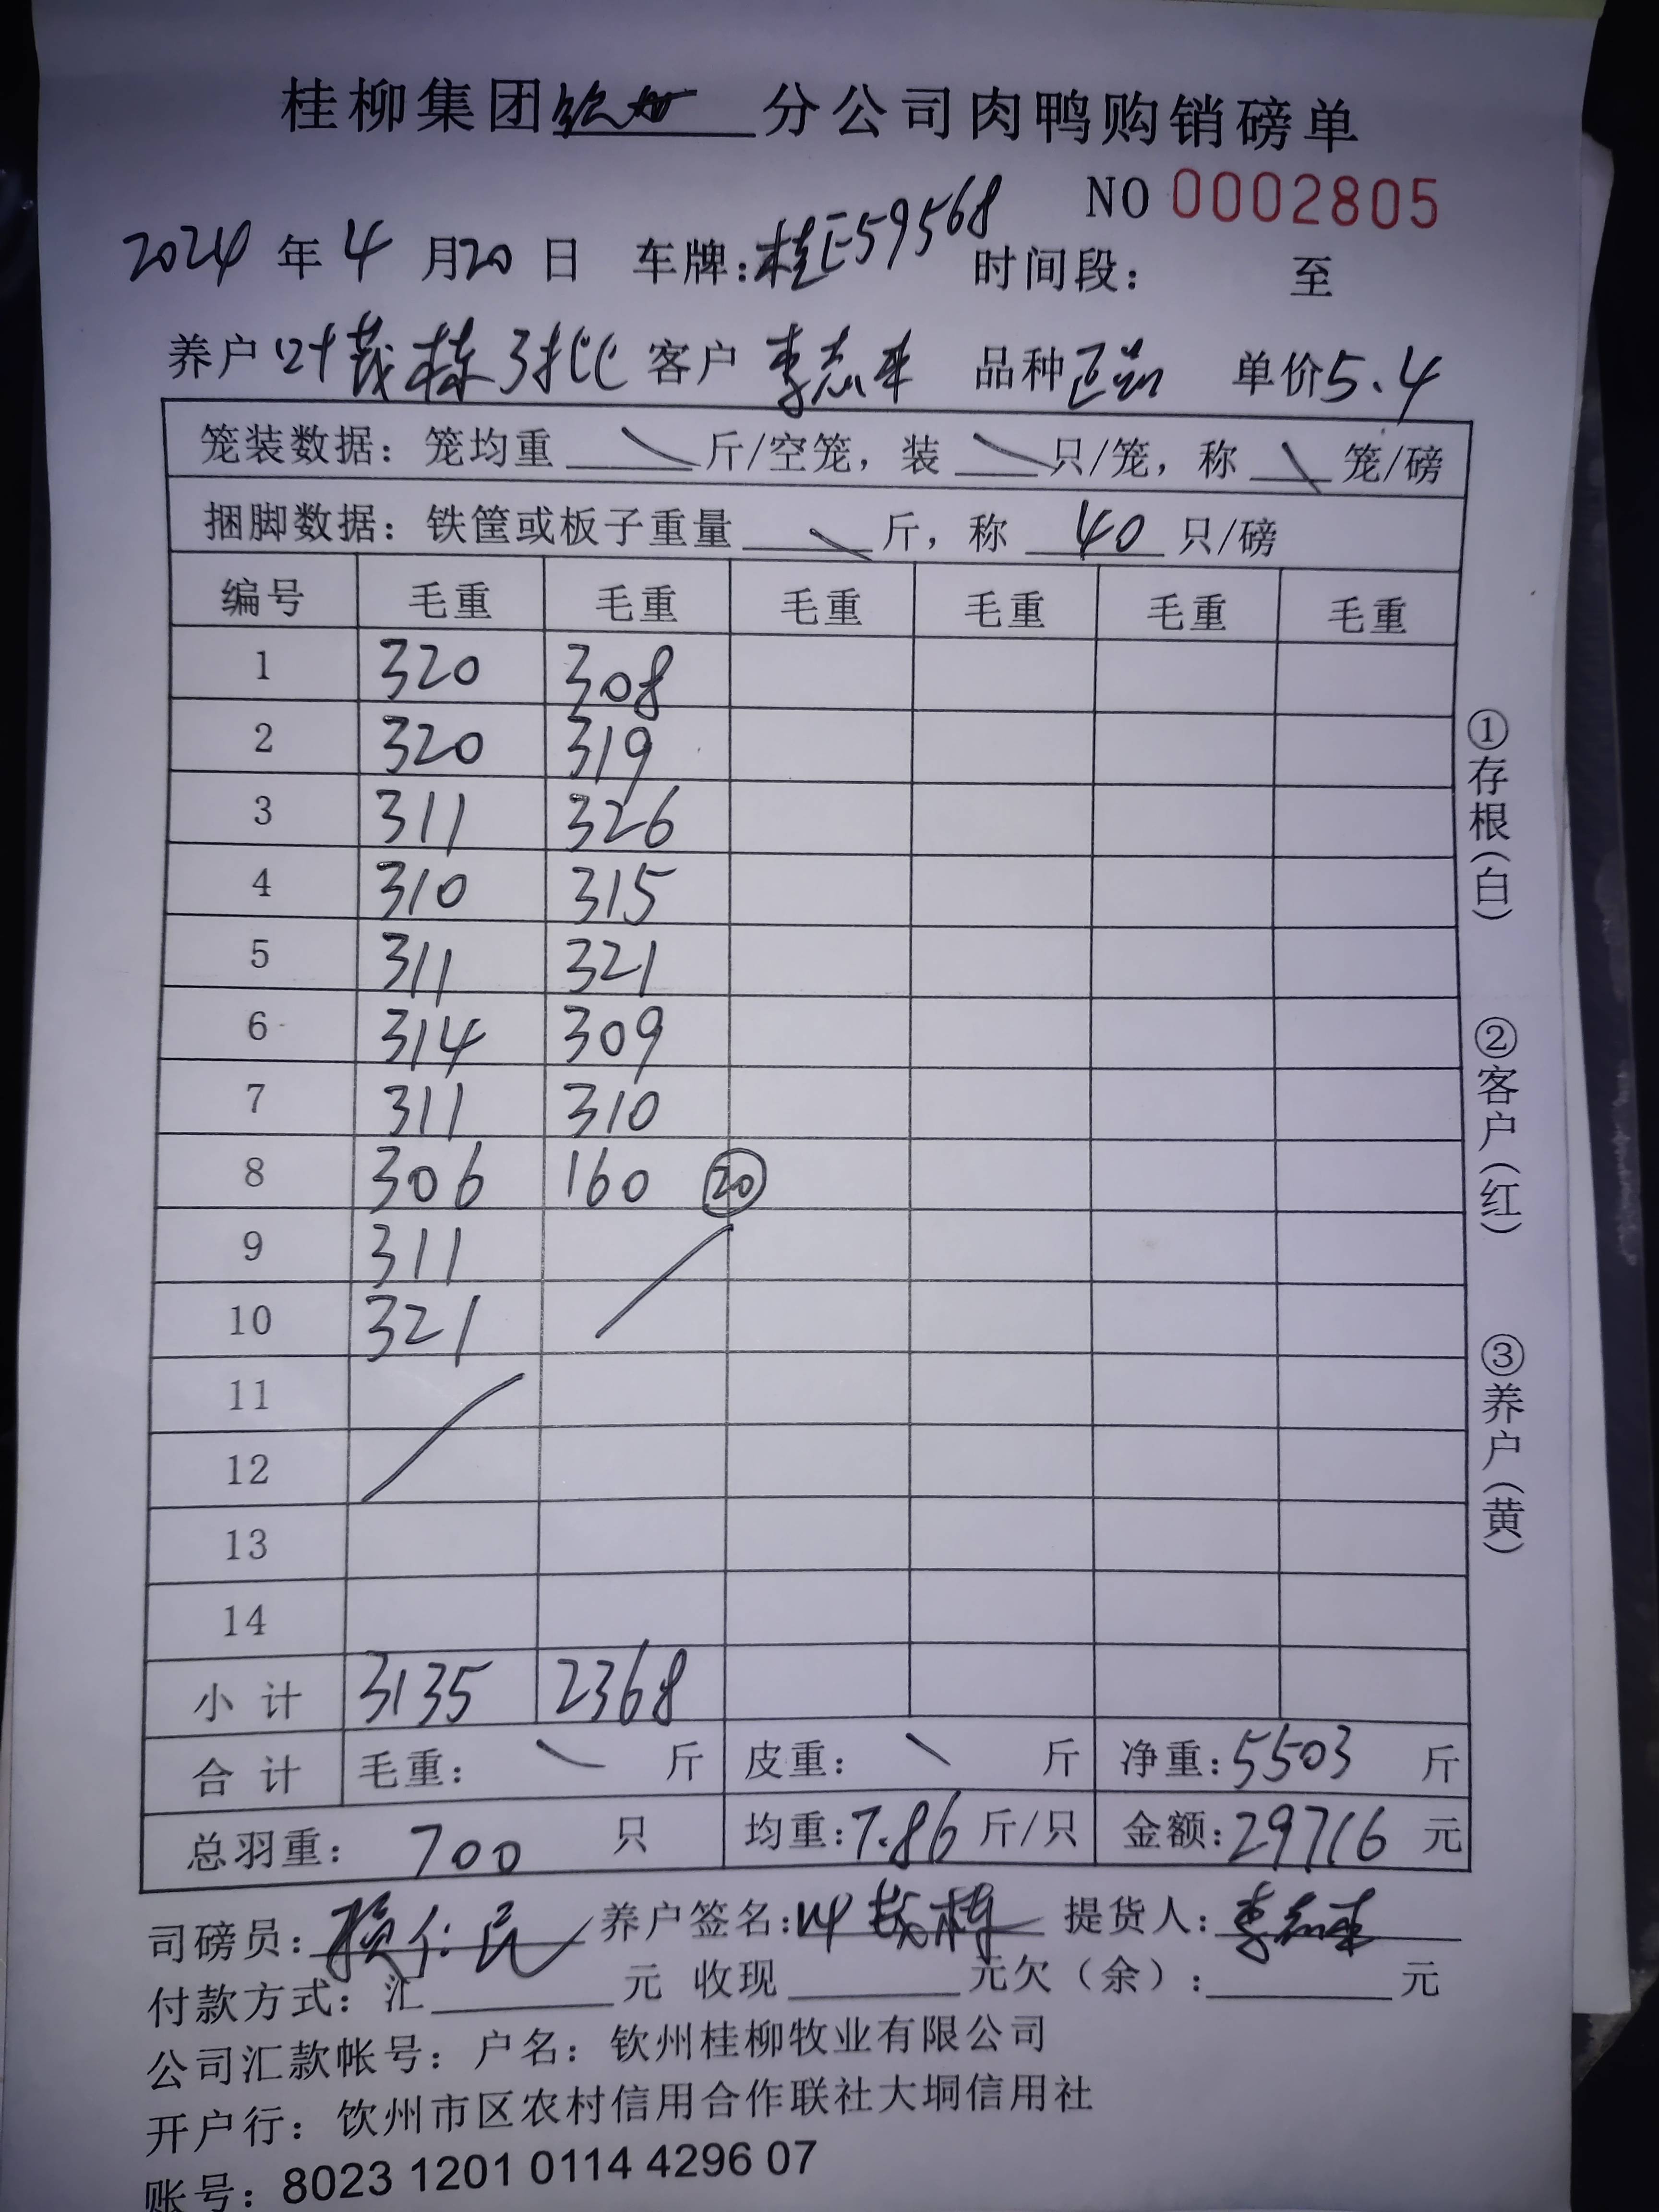 桂柳集团钦州分公司肉鸭购销磅单
NO 0002805
2024年4月20日 车牌:桂E59568 时间段: 至
养户叶茂栋3批 客户李志 品种 单价5.4
笼装数据:笼均重 斤/空笼,装 只/笼,称 笼/磅
捆脚数据:铁筐或板子重量 斤,称 40 只/磅
编号 毛重 毛重 毛重 毛重 毛重 毛重
1 320 308
2 320 319
3 311 326
4 310 315
5 311 321
6 314 309
7 311 310
8 306 160 ⑳
9 311
10 321
11
12
13
14
小计 3135 2368
合计 毛重: 斤 皮重: 斤 净重:5503 斤
总羽重: 700 只 均重:7.86 斤/只 金额:29716 元
司磅员: 养户签名:叶茂栋 提货人:李志
付款方式:汇 元 收现 元欠(余): 元
公司汇款帐号:户名:钦州桂柳牧业有限公司
开户行:饮州市区农村信用合作联社大垌信用社
账号:8023 1201 0114 4296 07
①存根(白)
②客户(红)
③养户(黄)